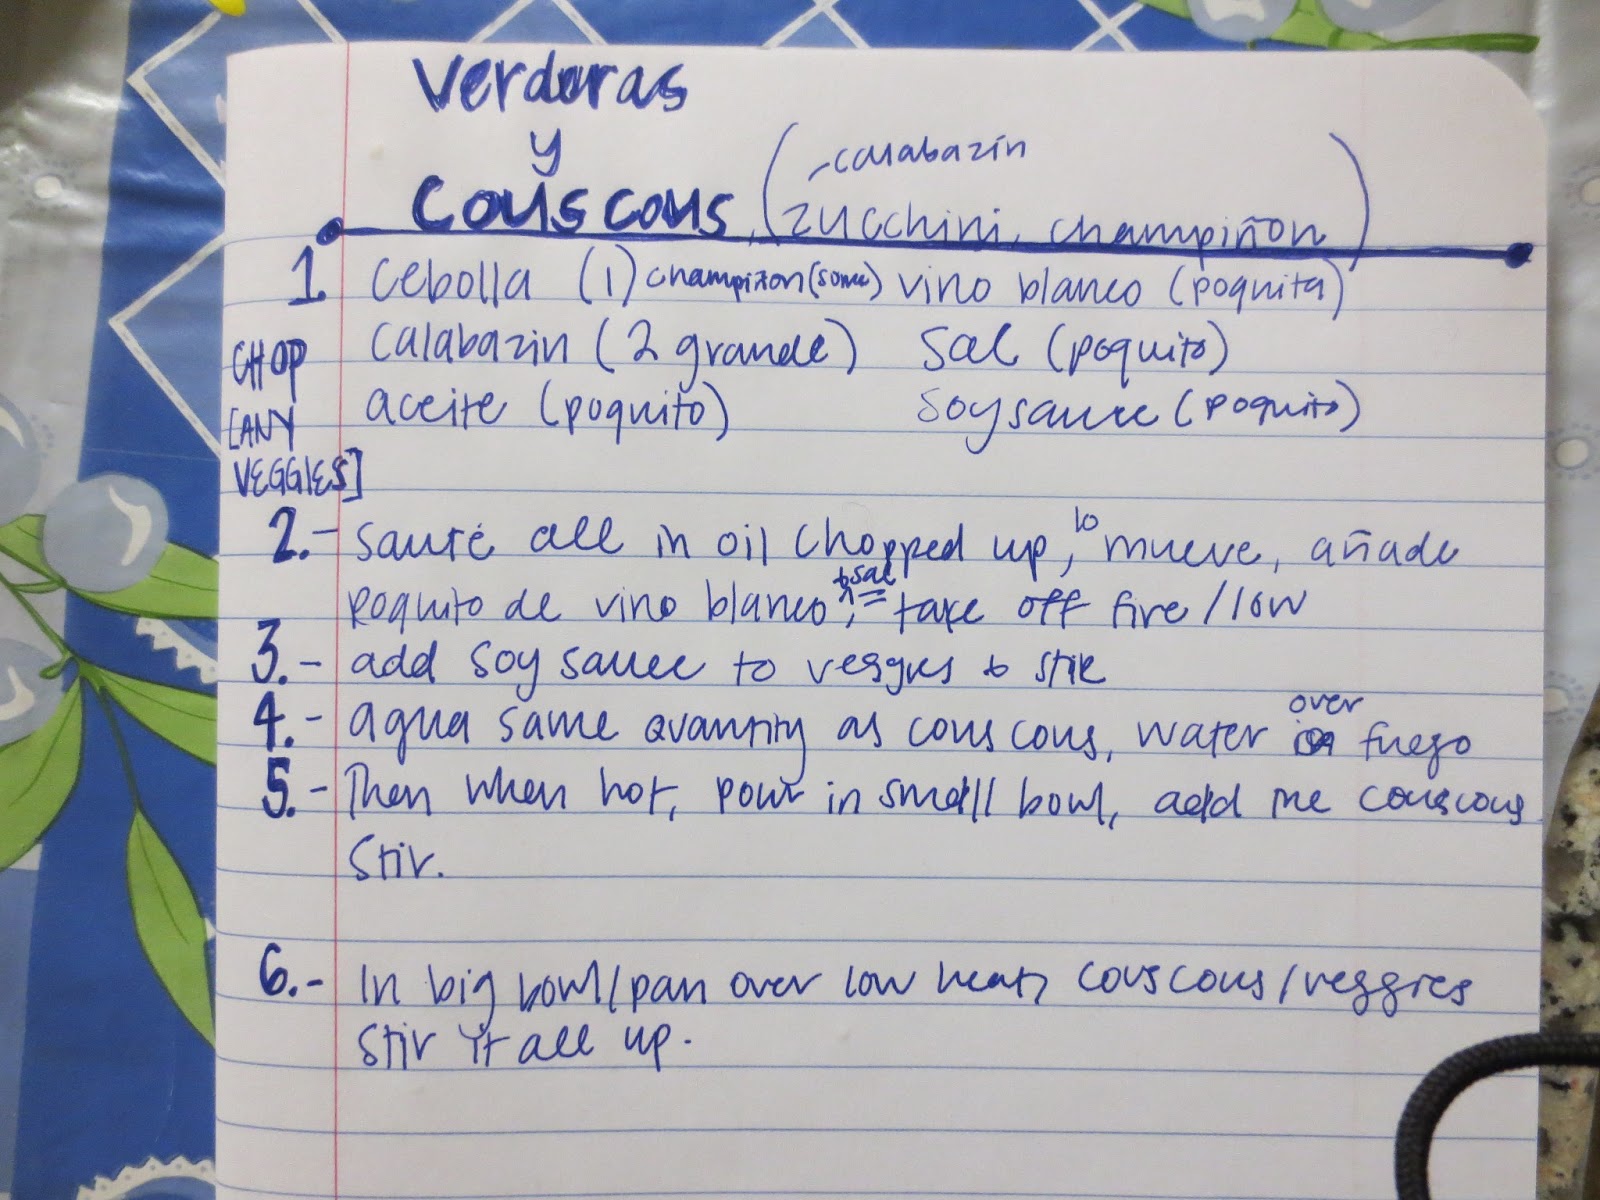 Verduras
y
Couscous, (zucchini, champiñon)
calabazin
1. Cebolla (1) champiñon (some) vino blanco (poquita)
calabazin (2 grande) sal (poquito)
CHOP
aceite (poquito) soy sauce (poquito)
[ANY
VEGGIES]
2.- sauté all in oil chopped up, lo mueve, añade
poquito de vino blanco, & sal, take off fire/low
3.- add soy sauce to veggies & stir
4.- agua same quantity as couscous, water over fuego
5.- Then when hot, pour in small bowl, add the couscous
Stir.
6.- In big bowl/pan over low heat, couscous/veggies
Stir it all up.